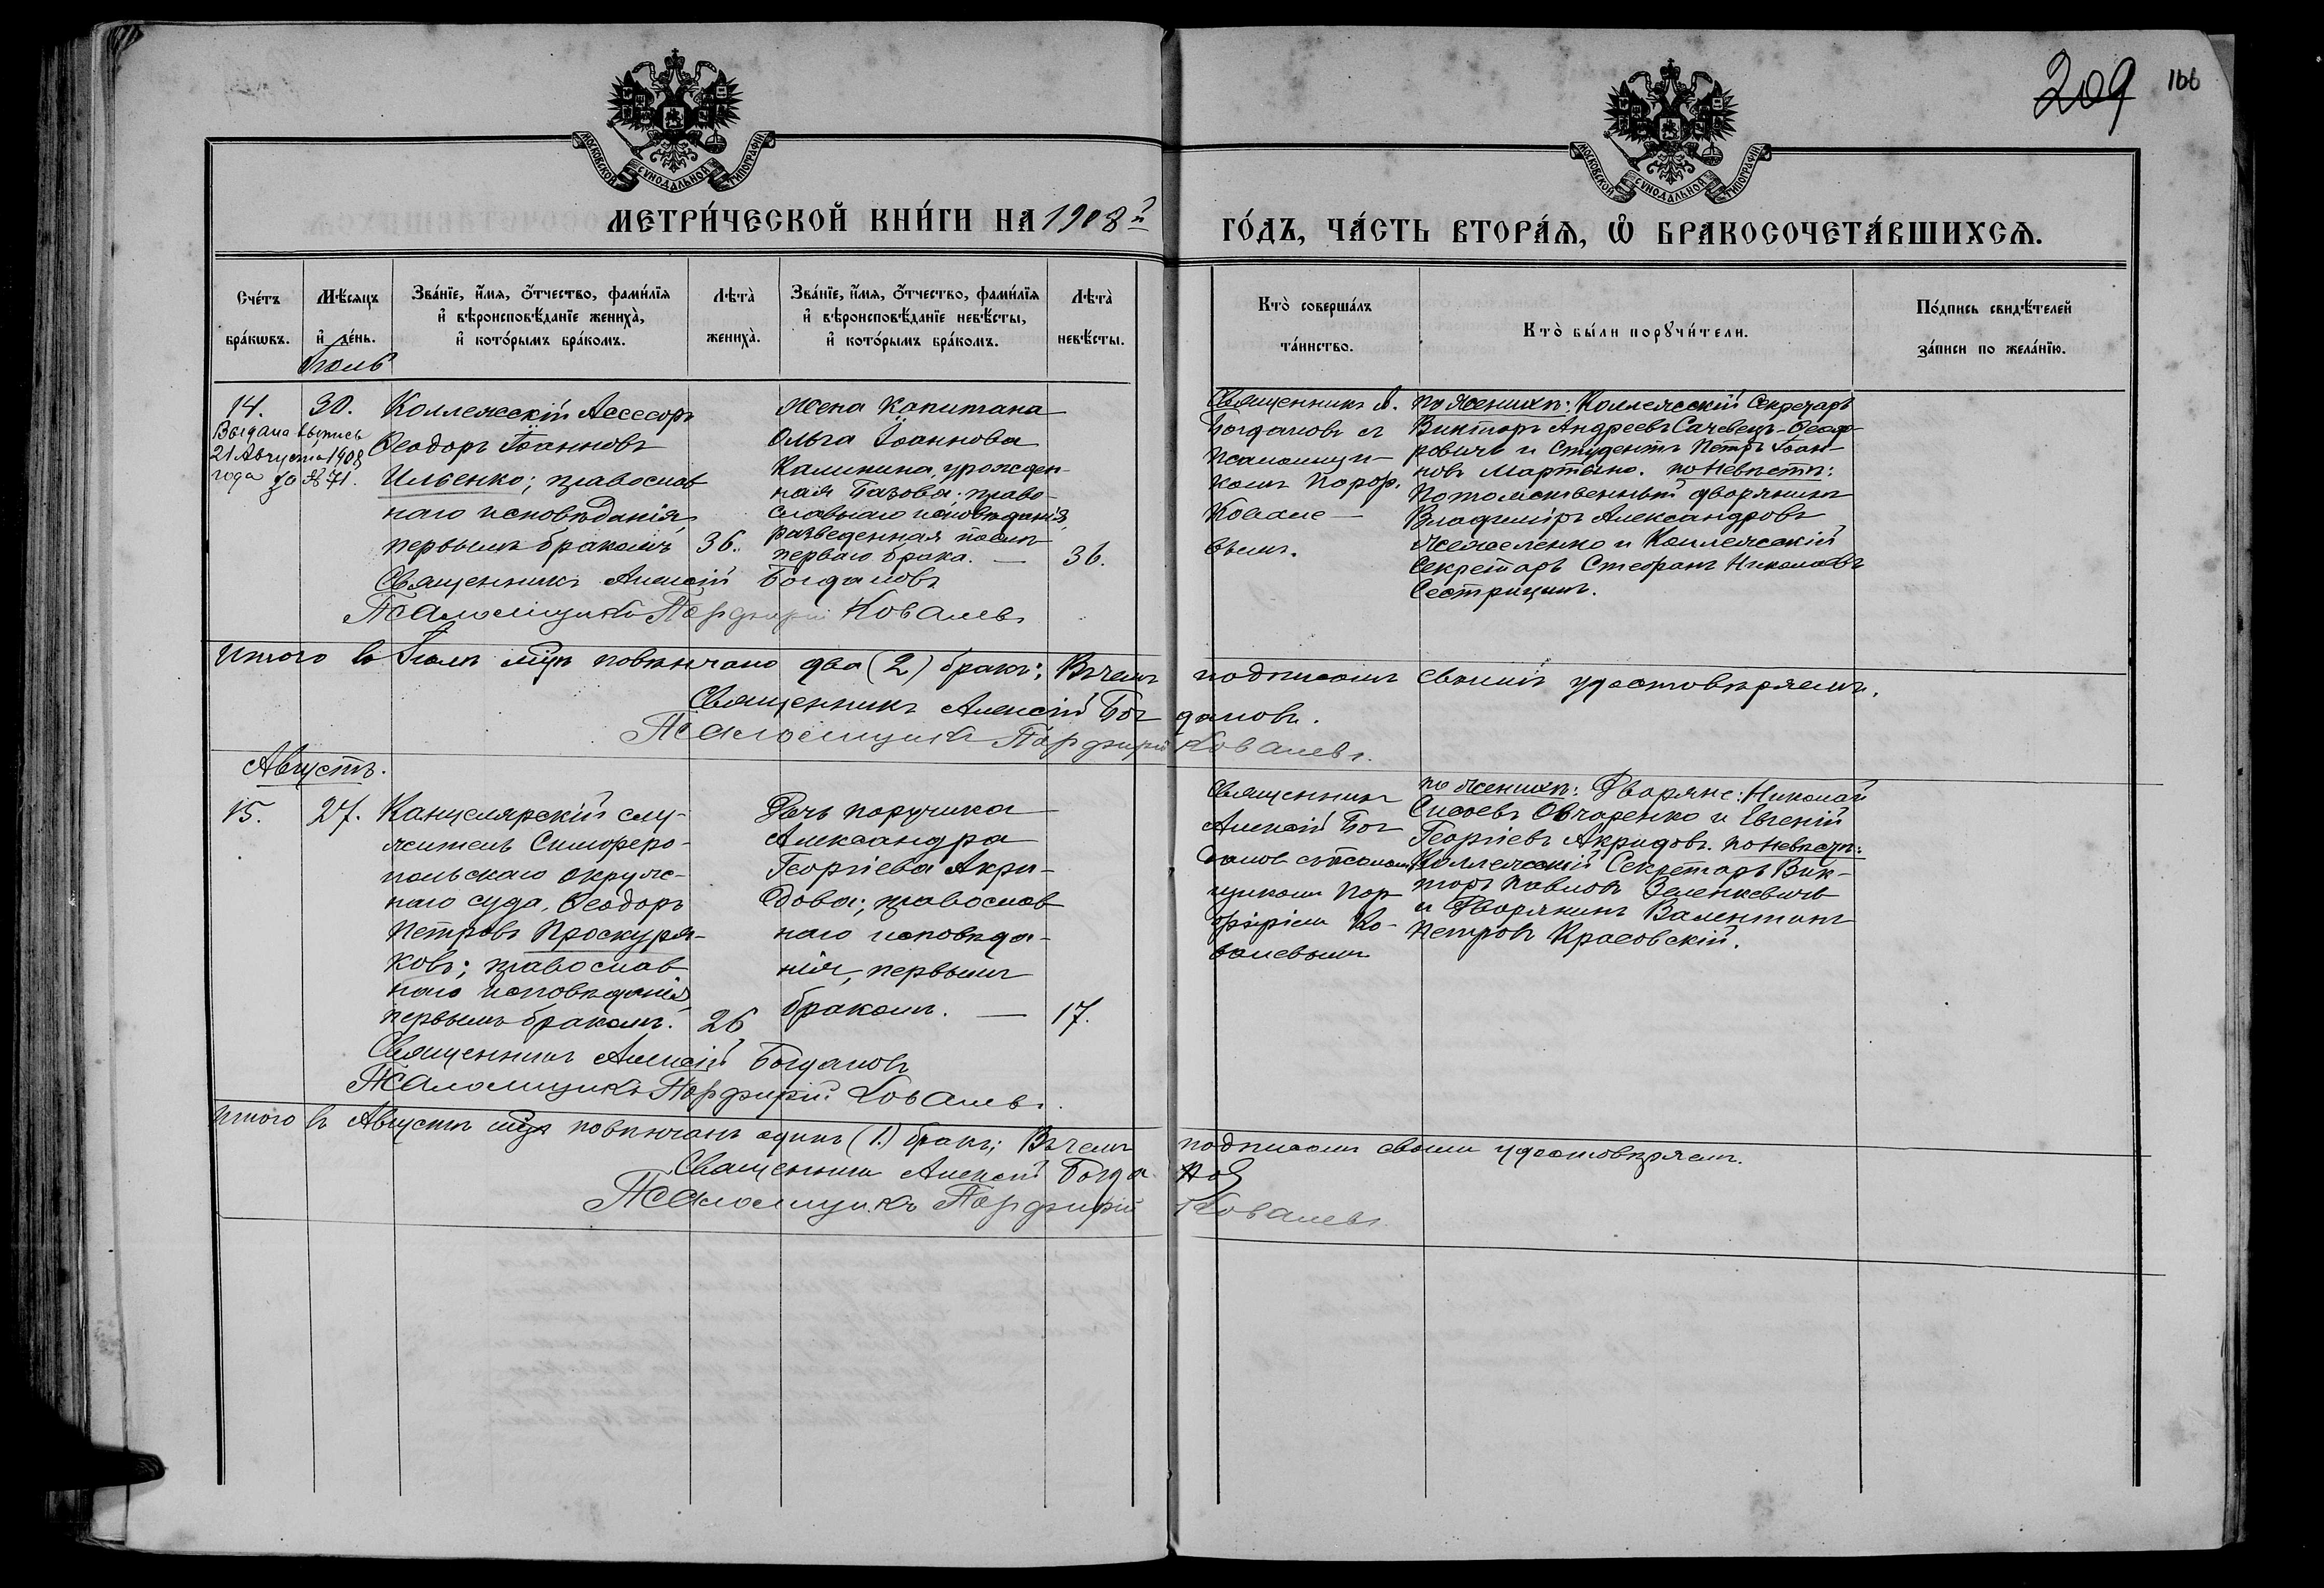 209 166
МОСКОВСКОЙ СѴНОДАЛЬНОЙ ТИПОГРАФІИ
МОСКОВСКОЙ СѴНОДАЛЬНОЙ ТИПОГРАФІИ
МЕТРИ́ЧЕСКОЙ КНИ́ГИ НА 1908 й
ГО́ДЪ, ЧА́СТЬ ВТОРА́Ѧ, Ѽ БРАКОСОЧЕТА́ВШИХСѦ.
Сче́тъ бра́кѡвъ.
Мѣ́сяцъ и҆ де́нь.
Зва́нїе, и҆́мя, ѻ҆́тчество, фами́лїя
и҆ вѣроисповѣ́данїе жениха̀,
и҆ кото́рымъ бра́комъ.
Лѣта̀ жениха̀.
Зва́нїе, и҆́мя, ѻ҆́тчество, фами́лїя
и҆ вѣроисповѣ́данїе невѣ́сты,
и҆ кото́рымъ бра́комъ.
Лѣта̀ невѣ́сты.
Кто̀ соверша́лъ
та́инство.
Кто̀ бы́ли порꙋчи́тели.
По́дпись свидѣ́телей
за́писи по жела́нїю.
Іюль
14.
Выдана выпись
21 Августа 1908
года за № 71.
30.
Коллежскій Ассесоръ
Ѳеодоръ Іоанновъ
Ильенко; православ
наго исповѣданія,
первымъ бракомъ
36.
Жена Капитана
Ольга Іоаннова
Калинина, урожден-
ная Базова; право-
славнаго исповѣданія,
разведенная послѣ
перваго брака. —
36.
Священникъ Алексій Богдановъ
Псаломщикъ Порфирій Ковалевъ
Священникъ А.
Богдановъ съ
псаломщи-
комъ Порф.
Ковале-
вымъ.
по женихѣ: Коллежскій Секретарь
Викторъ Андреевъ Сачевецъ-Ѳеод-
ровичъ и студентъ Петръ Іоан-
новъ Мартыно. по невѣстѣ:
Потомственный дворянинъ
Владиміръ Александровъ
Жежеленко и Коллежскій
Секретарь Стефанъ Николаевъ
Сестрицынъ.
Итого въ Іюлѣ мцѣ повѣнчано два (2) брака; Въ чемъ подписомъ своимъ удостовѣряемъ.
Священникъ Алексій Богдановъ.
Псаломщикъ Порфирій Ковалевъ.
Августъ.
15.
27.
Канцелярскій слу-
житель Симферо-
польскаго окруж-
наго суда, Ѳеодоръ
Петровъ Проскуря-
ковъ; православ
наго исповѣданія
первымъ бракомъ.
26
Дочь поручика
Александра
Георгіева Акри-
дова; православ
наго исповѣда-
нія, первымъ
бракомъ. —
17.
Священникъ Алексій Богдановъ
Псаломщикъ Порфирій Ковалевъ.
Священникъ
Алексій Бог
дановъ съ псалом
щикомъ Пор
фиріем Ко-
валевымъ
по женихѣ: Дворяне: Николай
Сысоевъ Овчаренко и Евгеній
Георгіевъ Акридовъ. по невѣстѣ:
Коллежскій Секретарь Вик-
торъ Павловъ Зеленкевичъ
и Дворянинъ Валентинъ
Петровъ Красовскій.
Итого въ Августѣ мцѣ повѣнчанъ одинъ (1) бракъ; Въ чемъ подписомъ своимъ удостовѣряемъ.
Священникъ Алексій Богданов
Псаломщикъ Порфирій Ковалевъ